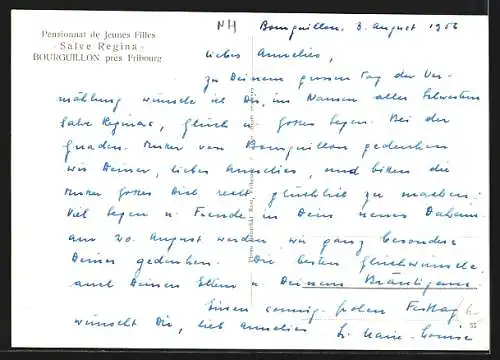 Pensionnat de Jeunes Filles
- Salve Regina -
BOURGUILLON près Fribourg
NH
Bourguillon, 3. August 1956
Liebes Annelies,
Zu Deinem grossen Tag der Ver-
mählung wünsche ich Dir, im Namen aller Schwestern
Salve Reginas, Glück u. Gottes Segen. Bei der
Gnaden-Mutter von Bourguillon gedenken
wir Deiner, liebes Annelies, und bitten die
Mutter Gottes Dich recht glücklich zu machen.
Viel Segen u. Freude in Dein neues Daheim.
Am 20. August werden wir ganz besonders
Deiner gedenken. Die besten Glückwünsche
auch Deinen Eltern u. Deinem Bräutigam.
Einen sonnig-frohen Festtag
wünscht Dir, lieb Annelies Sr. Marie-Louise